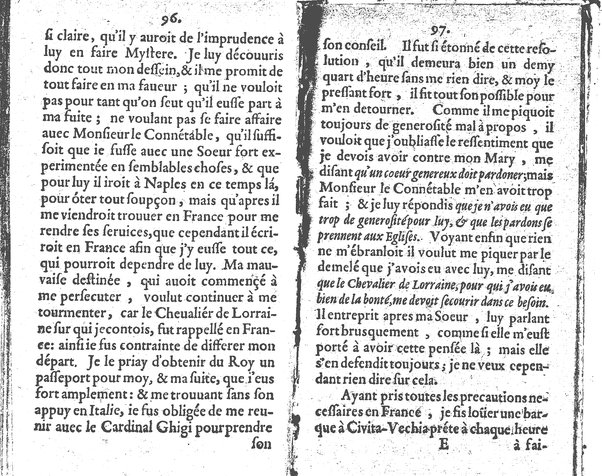 96.
si claire, qu'il y auroit de l'imprudence à
luy en faire Mystere. Je luy découuris
donc tout mon dessein, & il me promit de
tout faire en ma faueur ; qu'il ne vouloit
pas pour tant qu'on sceut qu'il eusse part à
ma fuite ; ne voulant pas se faire affaire
auec Monsieur le Connétable, qu'il suffi-
soit que ie fusse auec une Soeur fort ex-
perimentée en semblables choses, & que
pour luy il iroit à Naples en ce temps lá,
pour óter tout soupçon, mais qu'apres il
me viendroit trouuer en France pour me
rendre ses seruices, que cependant il écri-
roit en France afin que j'y eusse tout ce,
qui pourroit dependre de luy. Ma mau-
vaise destinée, qui auoit commençé à
me persecuter, voulut continuer à me
tourmenter, car le Cheualiér de Lorrai-
ne sur qui je contois, fut rappellé en Fran-
ce: ainsi ie fus contrainte de differer mon
départ. Je le priay d'obtenir du Roy un
passeport pour moy, & ma suite, que j'eus
fort amplement: & me trouuant sans son
appuy en Italie, ie fus obligée de me reu-
nir auec le Cardinal Ghigi pour prendre
son
97.
son conseil. Il fut si étonné de cette reso-
lution, qu'il demeura bien un demy
quart d'heure sans me rien dire, & moy le
pressant fort, il fit tout son possible pour
m'en detourner. Comme il me piquoit
toujours de generosité mal à propos, il
vouloit que j'oubliasse le ressentiment que
je devois avoir contre mon Mary, me
disant qu'un coeur genereux doit pardoner; mais
Monsieur le Connétable m'en avoit trop
fait ; & je luy répondis que je n'avois eu que
trop de generosité pour luy, & que les pardons se
prennent aux Eglises. Voyant enfin que rien
ne m'ébranloit il voulut me piquer par le
demelé que j'avois eu avec luy, me disant
que le Chevalier de Lorraine, pour qui j'avois eu,
bien de la bonté, me devoit secourir dans ce besoin.
Il entreprit apres ma Soeur, luy parlant
fort brusquement, comme si elle m'eust
porté à avoir cette pensée là ; mais elle
s'en defendit toujours; je ne veux cepen-
dant rien dire sur cela.
Ayant pris toutes les precautions ne-
cessaires en France, je fis loüer une bar-
que à Civita-Vechia préte à chaque heure
E à fai-